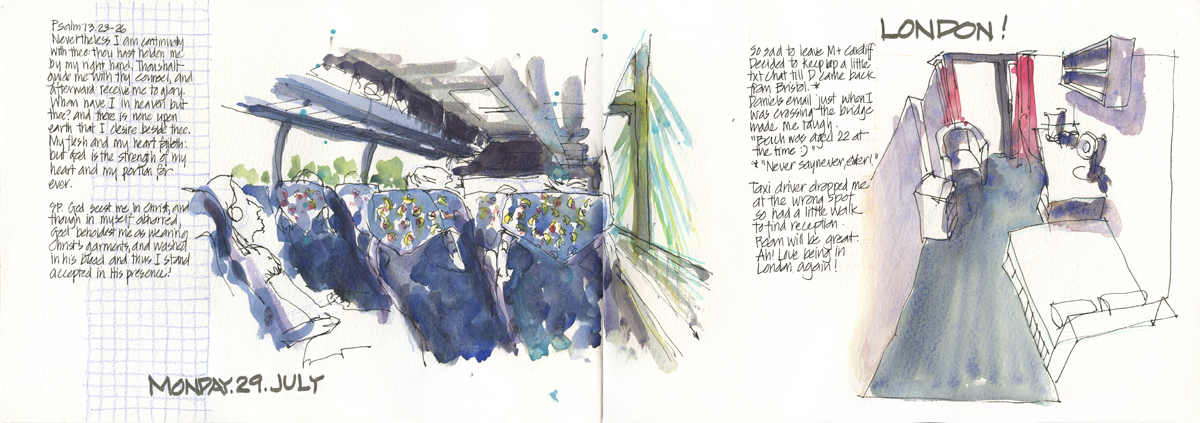 Psalm 73.23-26
Nevertheless I am continually
with thee: thou hast holden me
by my right hand. Thou shalt
guide me with thy counsel, and
afterward receive me to glory.
Whom have I in heaven but
thee? and there is none upon
earth that I desire beside thee.
My flesh and my heart faileth:
but God is the strength of my
heart and my portion for
ever.
SP. God seest me in Christ, and
though in myself abhorred,
God beholdest me as wearing
Christ's garments, and washed
in his blood and thus I stand
accepted in His presence!
MONDAY.29.JULY
LONDON!
So sad to leave M+ Cardiff
Decided to keep up a little
txt chat till D came back
from Bristol. *
Daniels email just when I
was crossing the bridge
made me laugh.
"Bach was aged 22 at
the time :)"
* "Never say never, eker!"
Taxi driver dropped me
at the wrong spot
so had a little walk
to find reception.
Room will be great.
Ah! Love being in
London again!